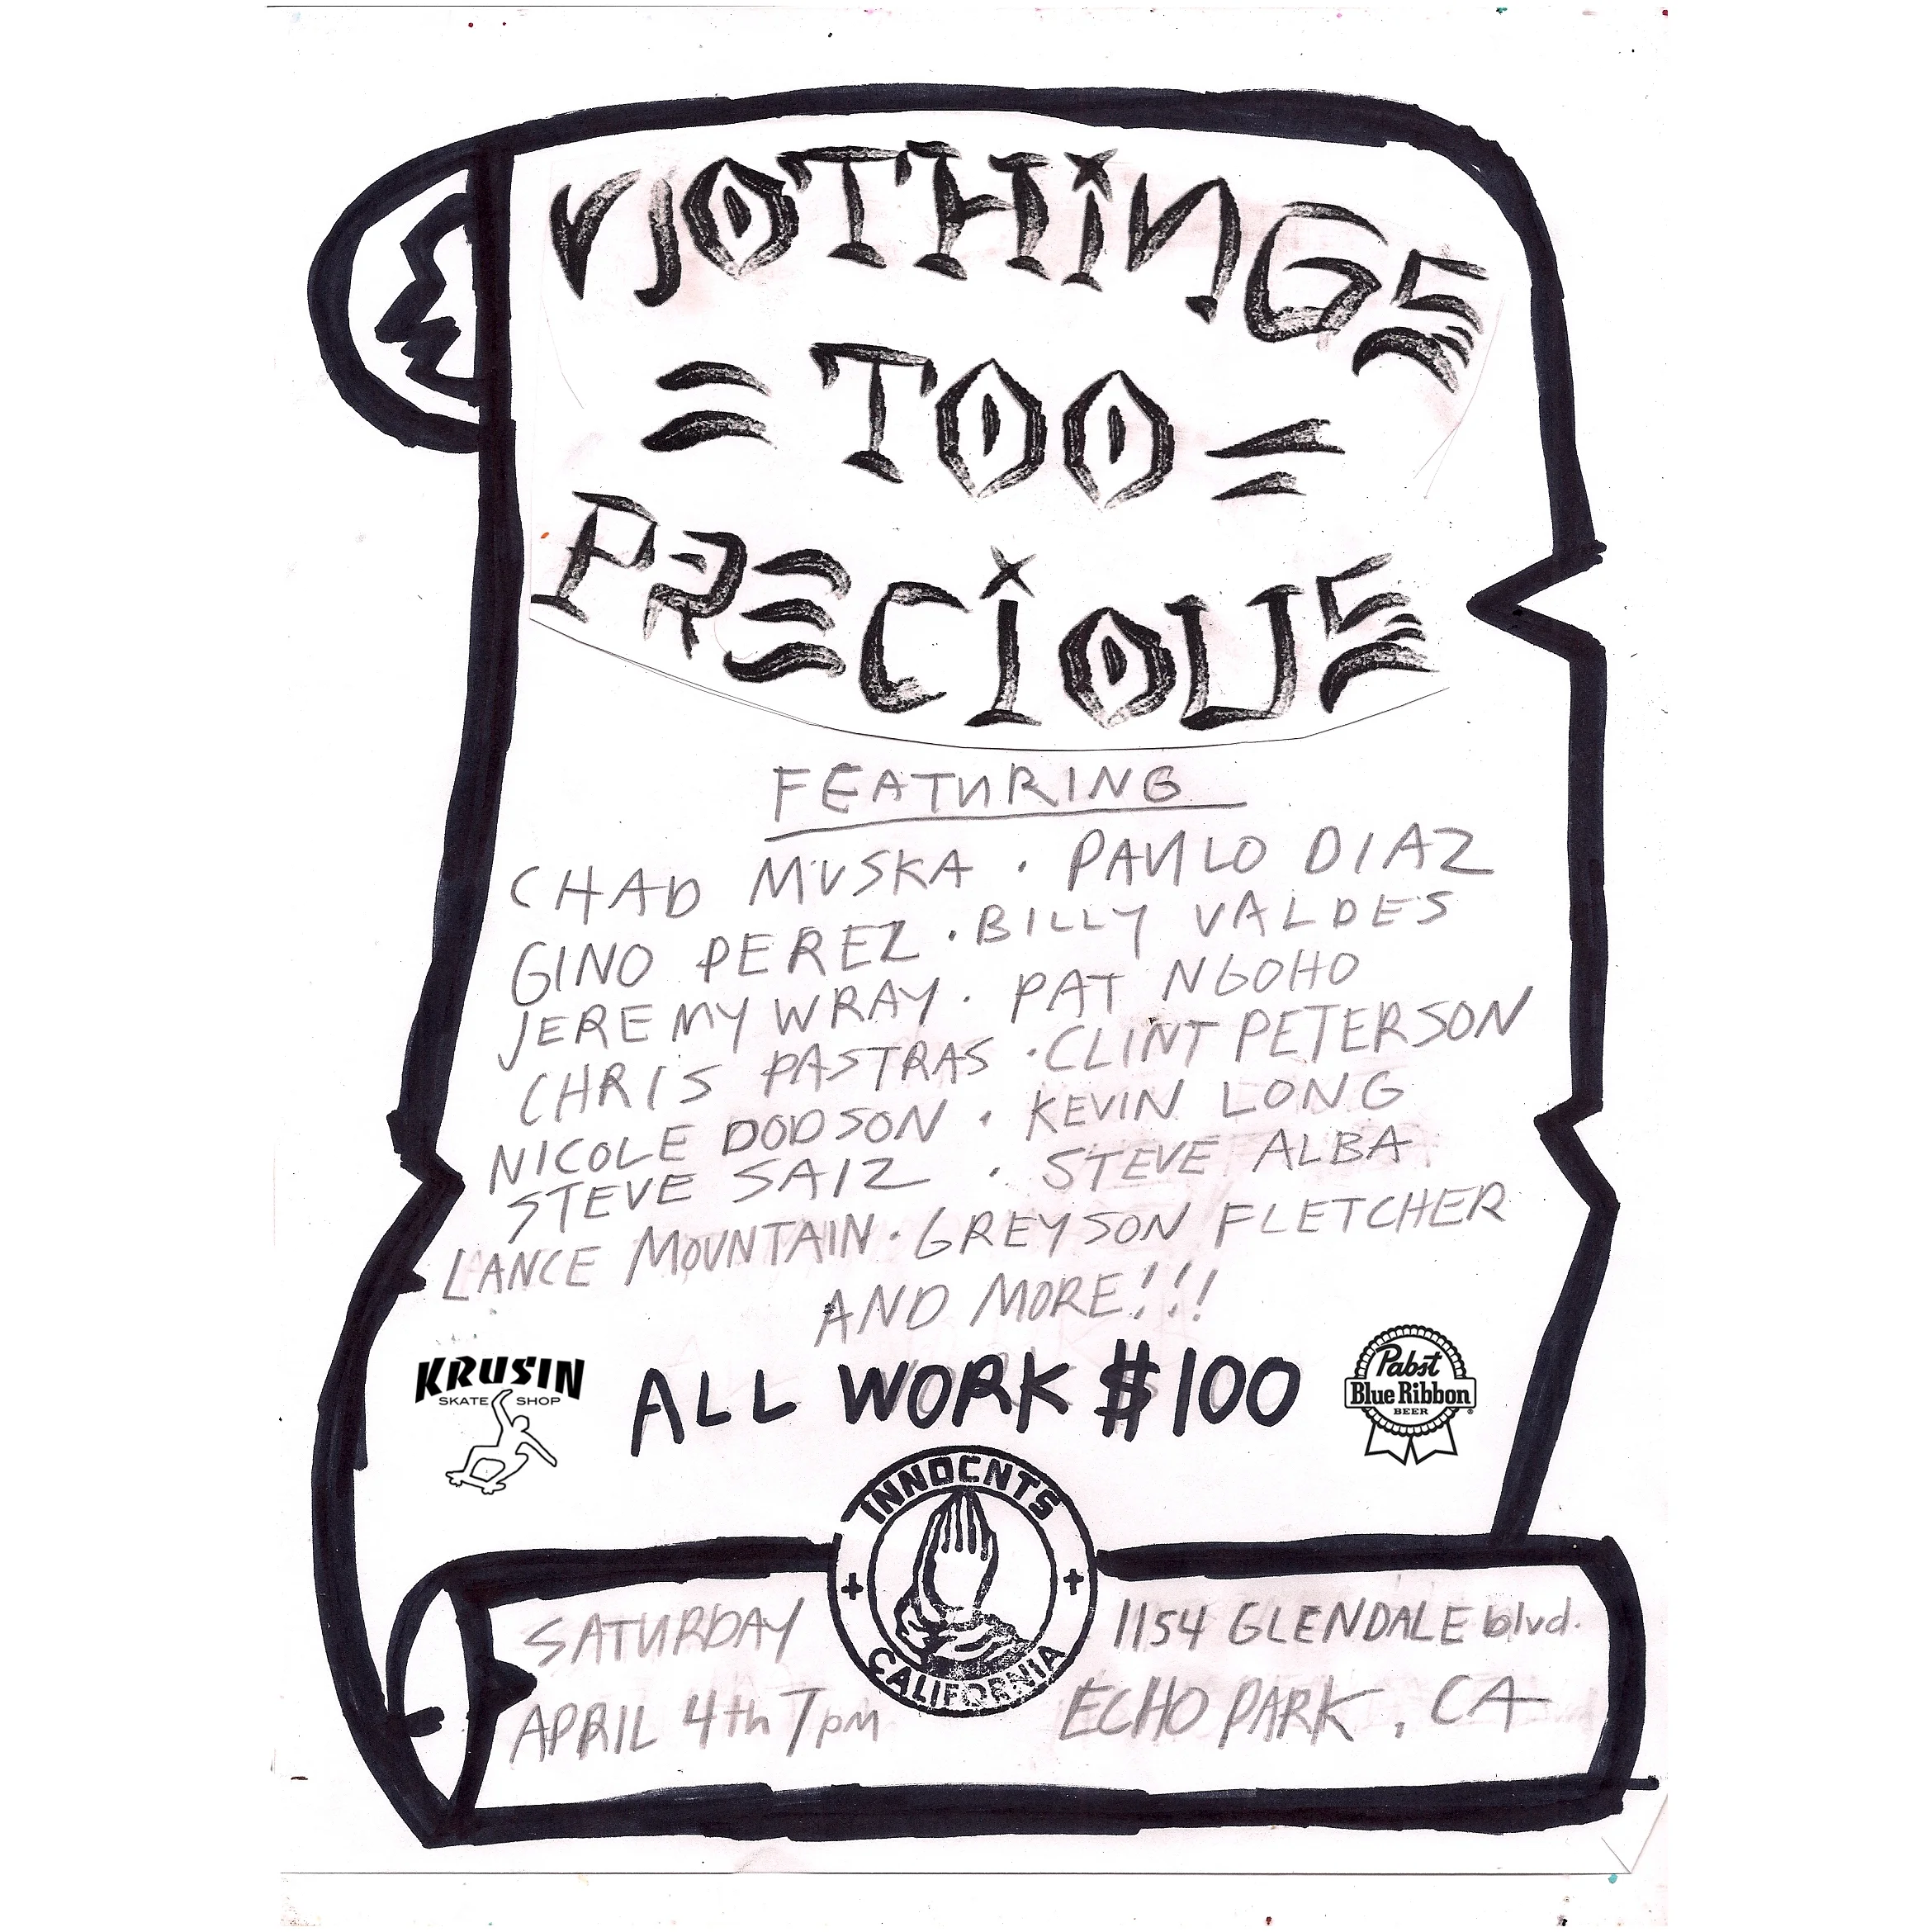 NOTHINGS
= TOO =
PRECIOUS
FEATURING
CHAD MUSKA · PAULO DIAZ
GINO PEREZ · BILLY VALDES
JEREMY WRAY · PAT NGOHO
CHRIS PASTRAS · CLINT PETERSON
NICOLE DODSON · KEVIN LONG
STEVE SAIZ · STEVE ALBA
LANCE MOUNTAIN · GREYSON FLETCHER
AND MORE!!!
KRUSIN
SKATE SHOP
ALL WORK $100
Pabst
Blue Ribbon
BEER
®
INNOCNTS
CALIFORNIA
SATURDAY
APRIL 4th 7pm
1154 GLENDALE blvd.
ECHO PARK, CA